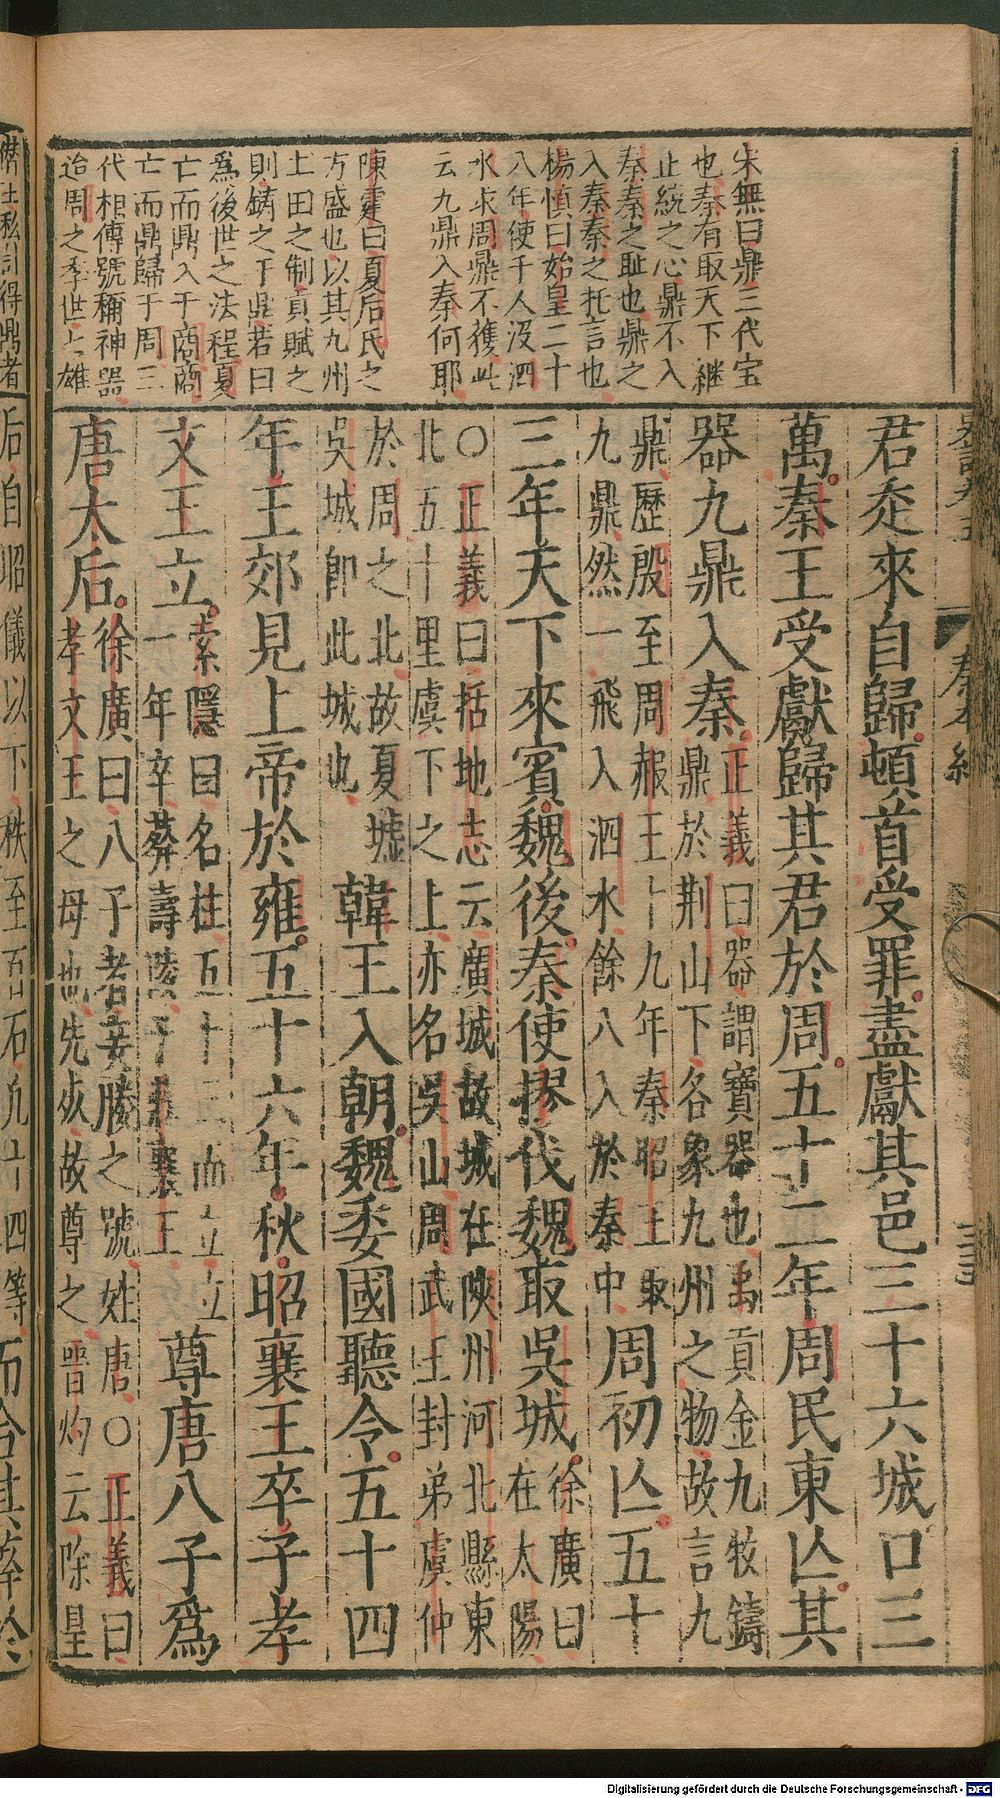 宋無曰鼎三代宝
也秦有取天下継
止統之心鼎不入
秦秦之耻也鼎之
入秦秦之托言也
楊慎曰始皇二十
八年使千人没泗
水求周鼎不獲此
云九鼎入秦何耶
陳霆曰夏后氏之
方盛也以其九州
土田之制貢賦之
則鋳之于鼎若曰
爲後世之法程夏
亡而鼎入于商商
亡而鼎歸于周三
代相傳號稱神器
迨周之季世
秦本紀
君走來自歸頓首受罪盡獻其邑三十六城口三
萬秦王受獻歸其君於周五十二年周民東亾其
器九鼎入秦
正義曰器謂寶器也禹貢金九牧鑄
鼎於荆山下各象九州之物故言九
鼎歷殷至周赧王十九年秦昭王取
九鼎然一飛入泗水餘八入於秦中
周初亾五十
三年天下來賓魏後秦使摎伐魏取吳城
徐廣曰
在太陽
〇正義曰括地志云廣城故城在陝州河北縣東
北五十里虞下之上亦名吳山周武王封弟虞仲
於周之北故夏墟
吳城即此城也
韓王入朝魏委國聽令五十四
年王郊見上帝於雍五十六年秋昭襄王卒子孝
文王立
索隱曰名柱五十三而立立
一年卒葬壽陵子莊襄王
尊唐八子爲
唐太后
徐廣曰八子者妾媵之號姓唐〇正義曰
孝文王之母也先死故尊之晉灼云除皇
后自昭儀以下秩至百石凡十四等
Digitalisierung gefördert durch die Deutsche Forschungsgemeinschaft - DFG